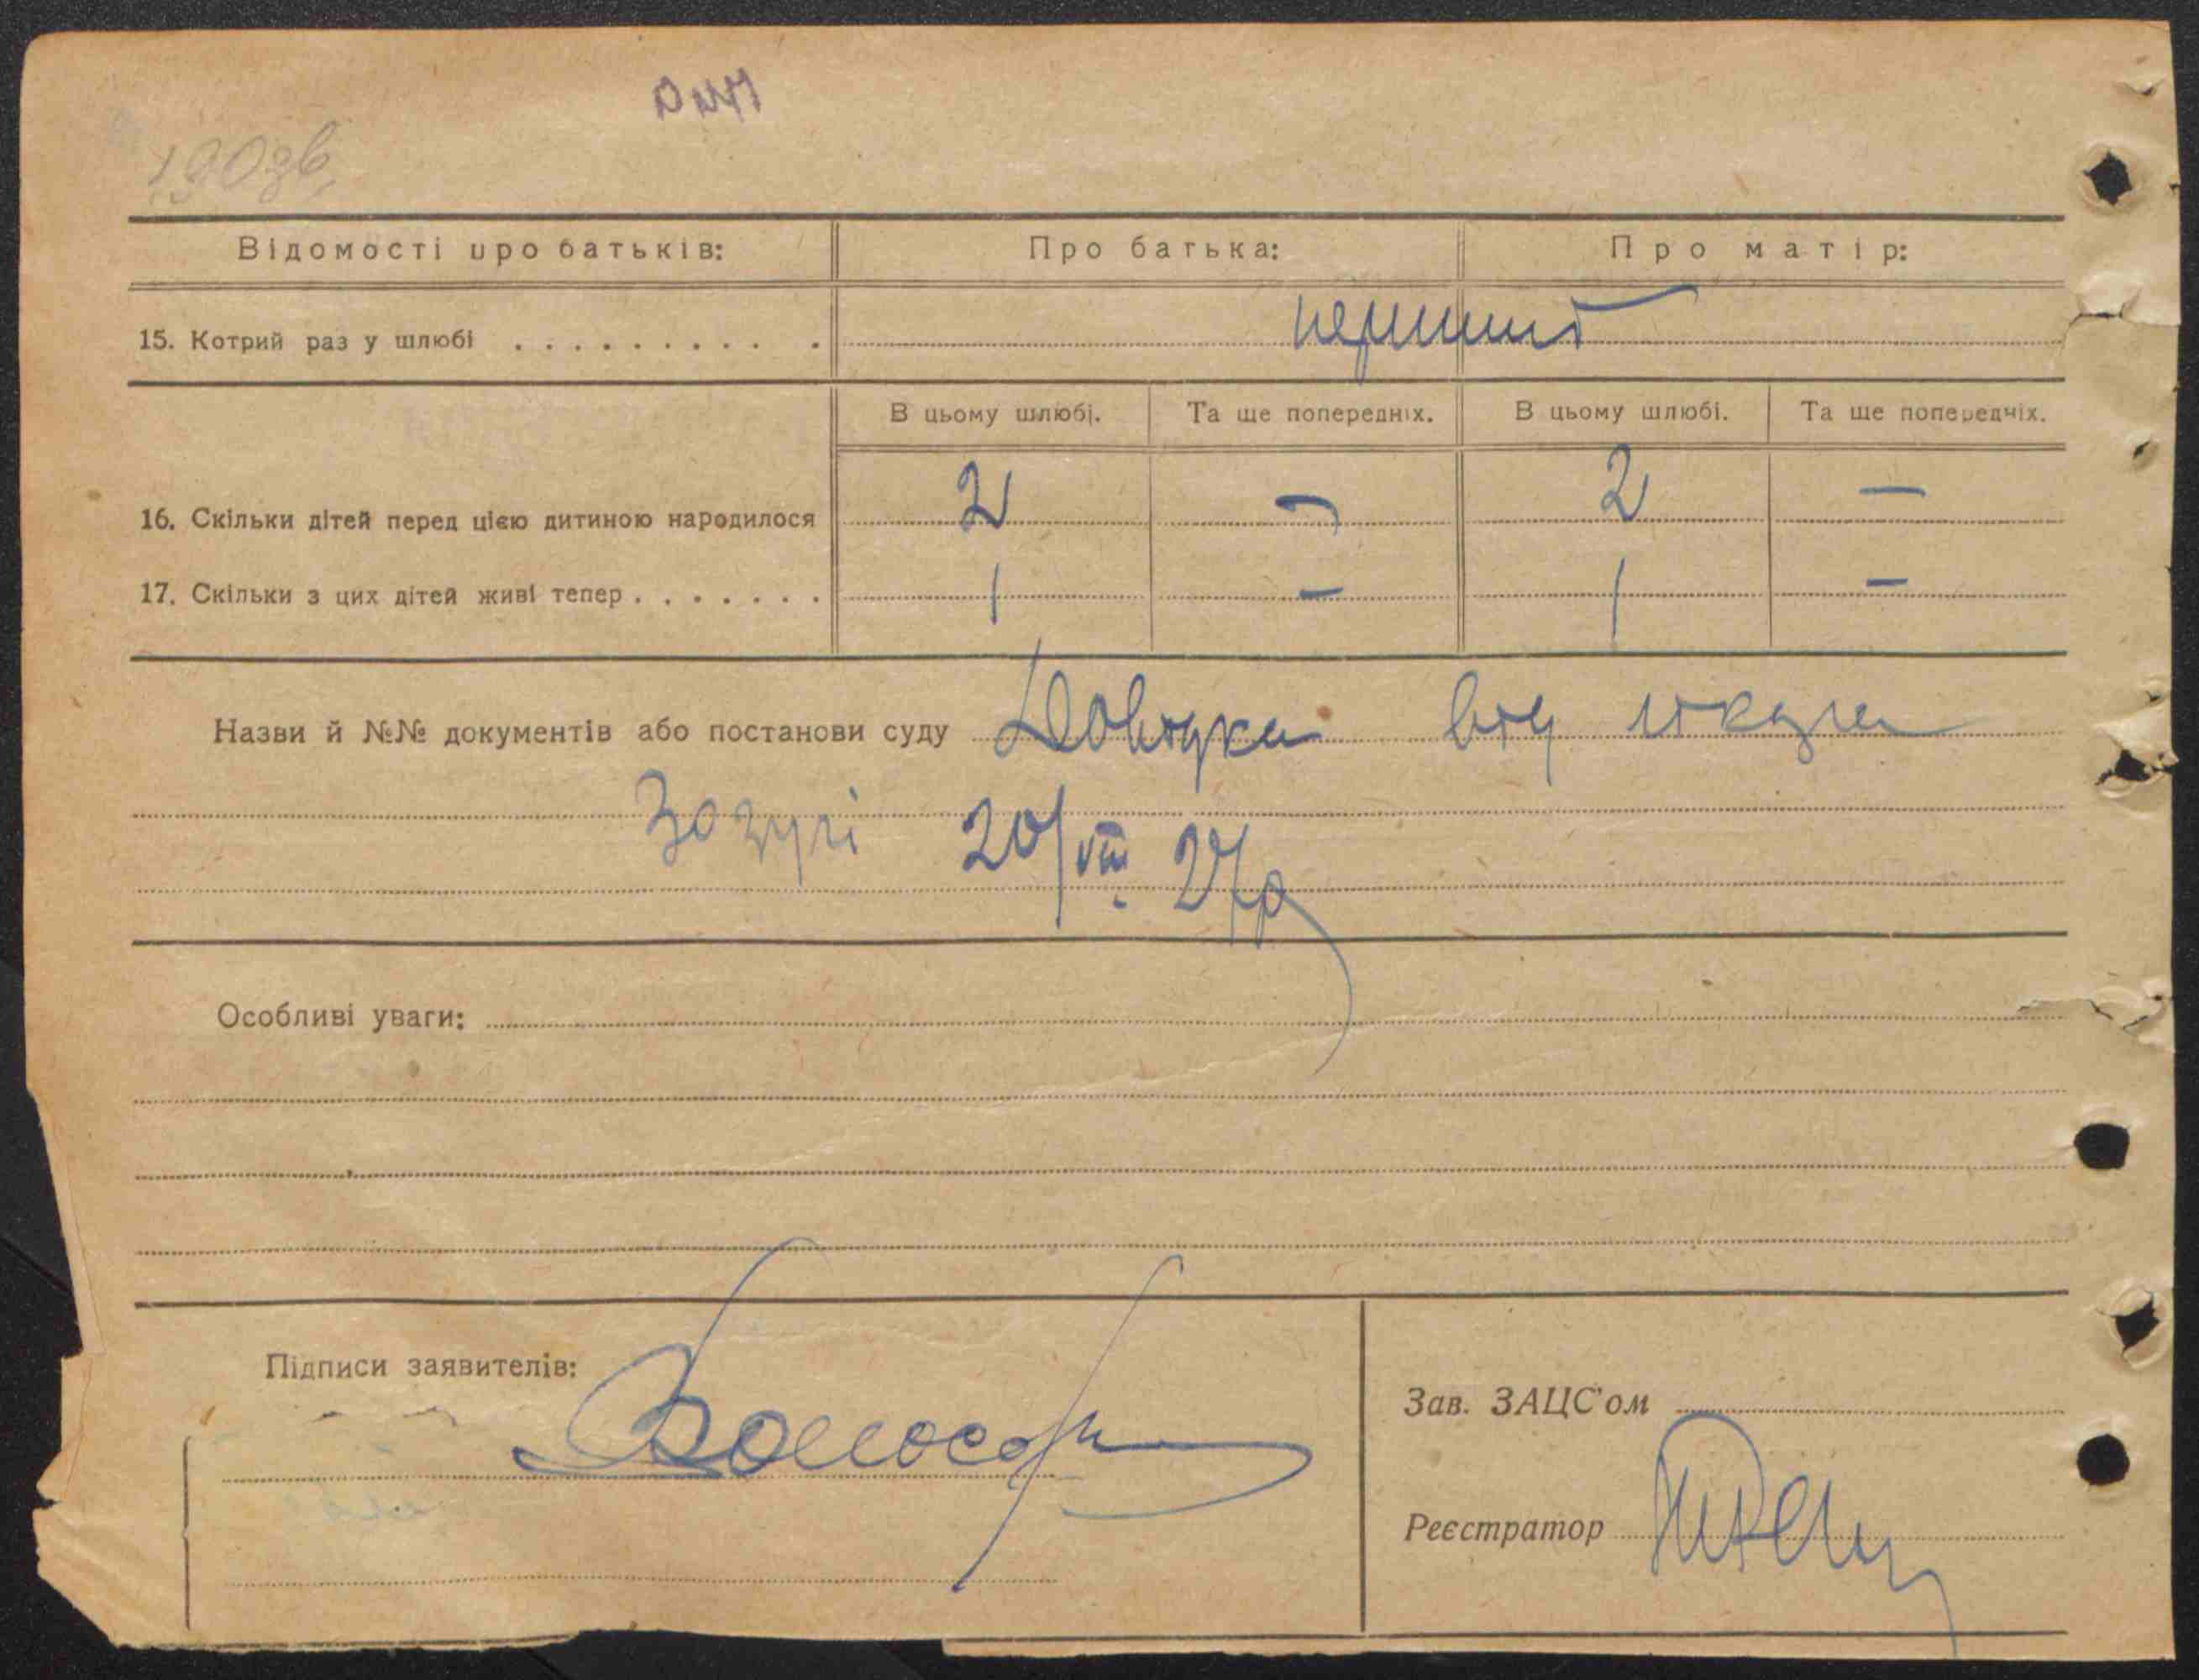 190 зв.
Відомості про батьків: Про батька: Про матір:
15. Котрий раз у шлюбі . . . . . . . . . . перший
В цьому шлюбі. Та ще попередніх. В цьому шлюбі. Та ще попередніх.
16. Скільки дітей перед цією дитиною народилося 2 — 2 —
17. Скільки з цих дітей живі тепер . . . . . . . 1 — 1 —
Назви й №№ документів або постанови суду Довідка від лікаря
20/VIII 27р
Особливі уваги:
Підписи заявителів:
Зав. ЗАЦС'ом
Реєстратор